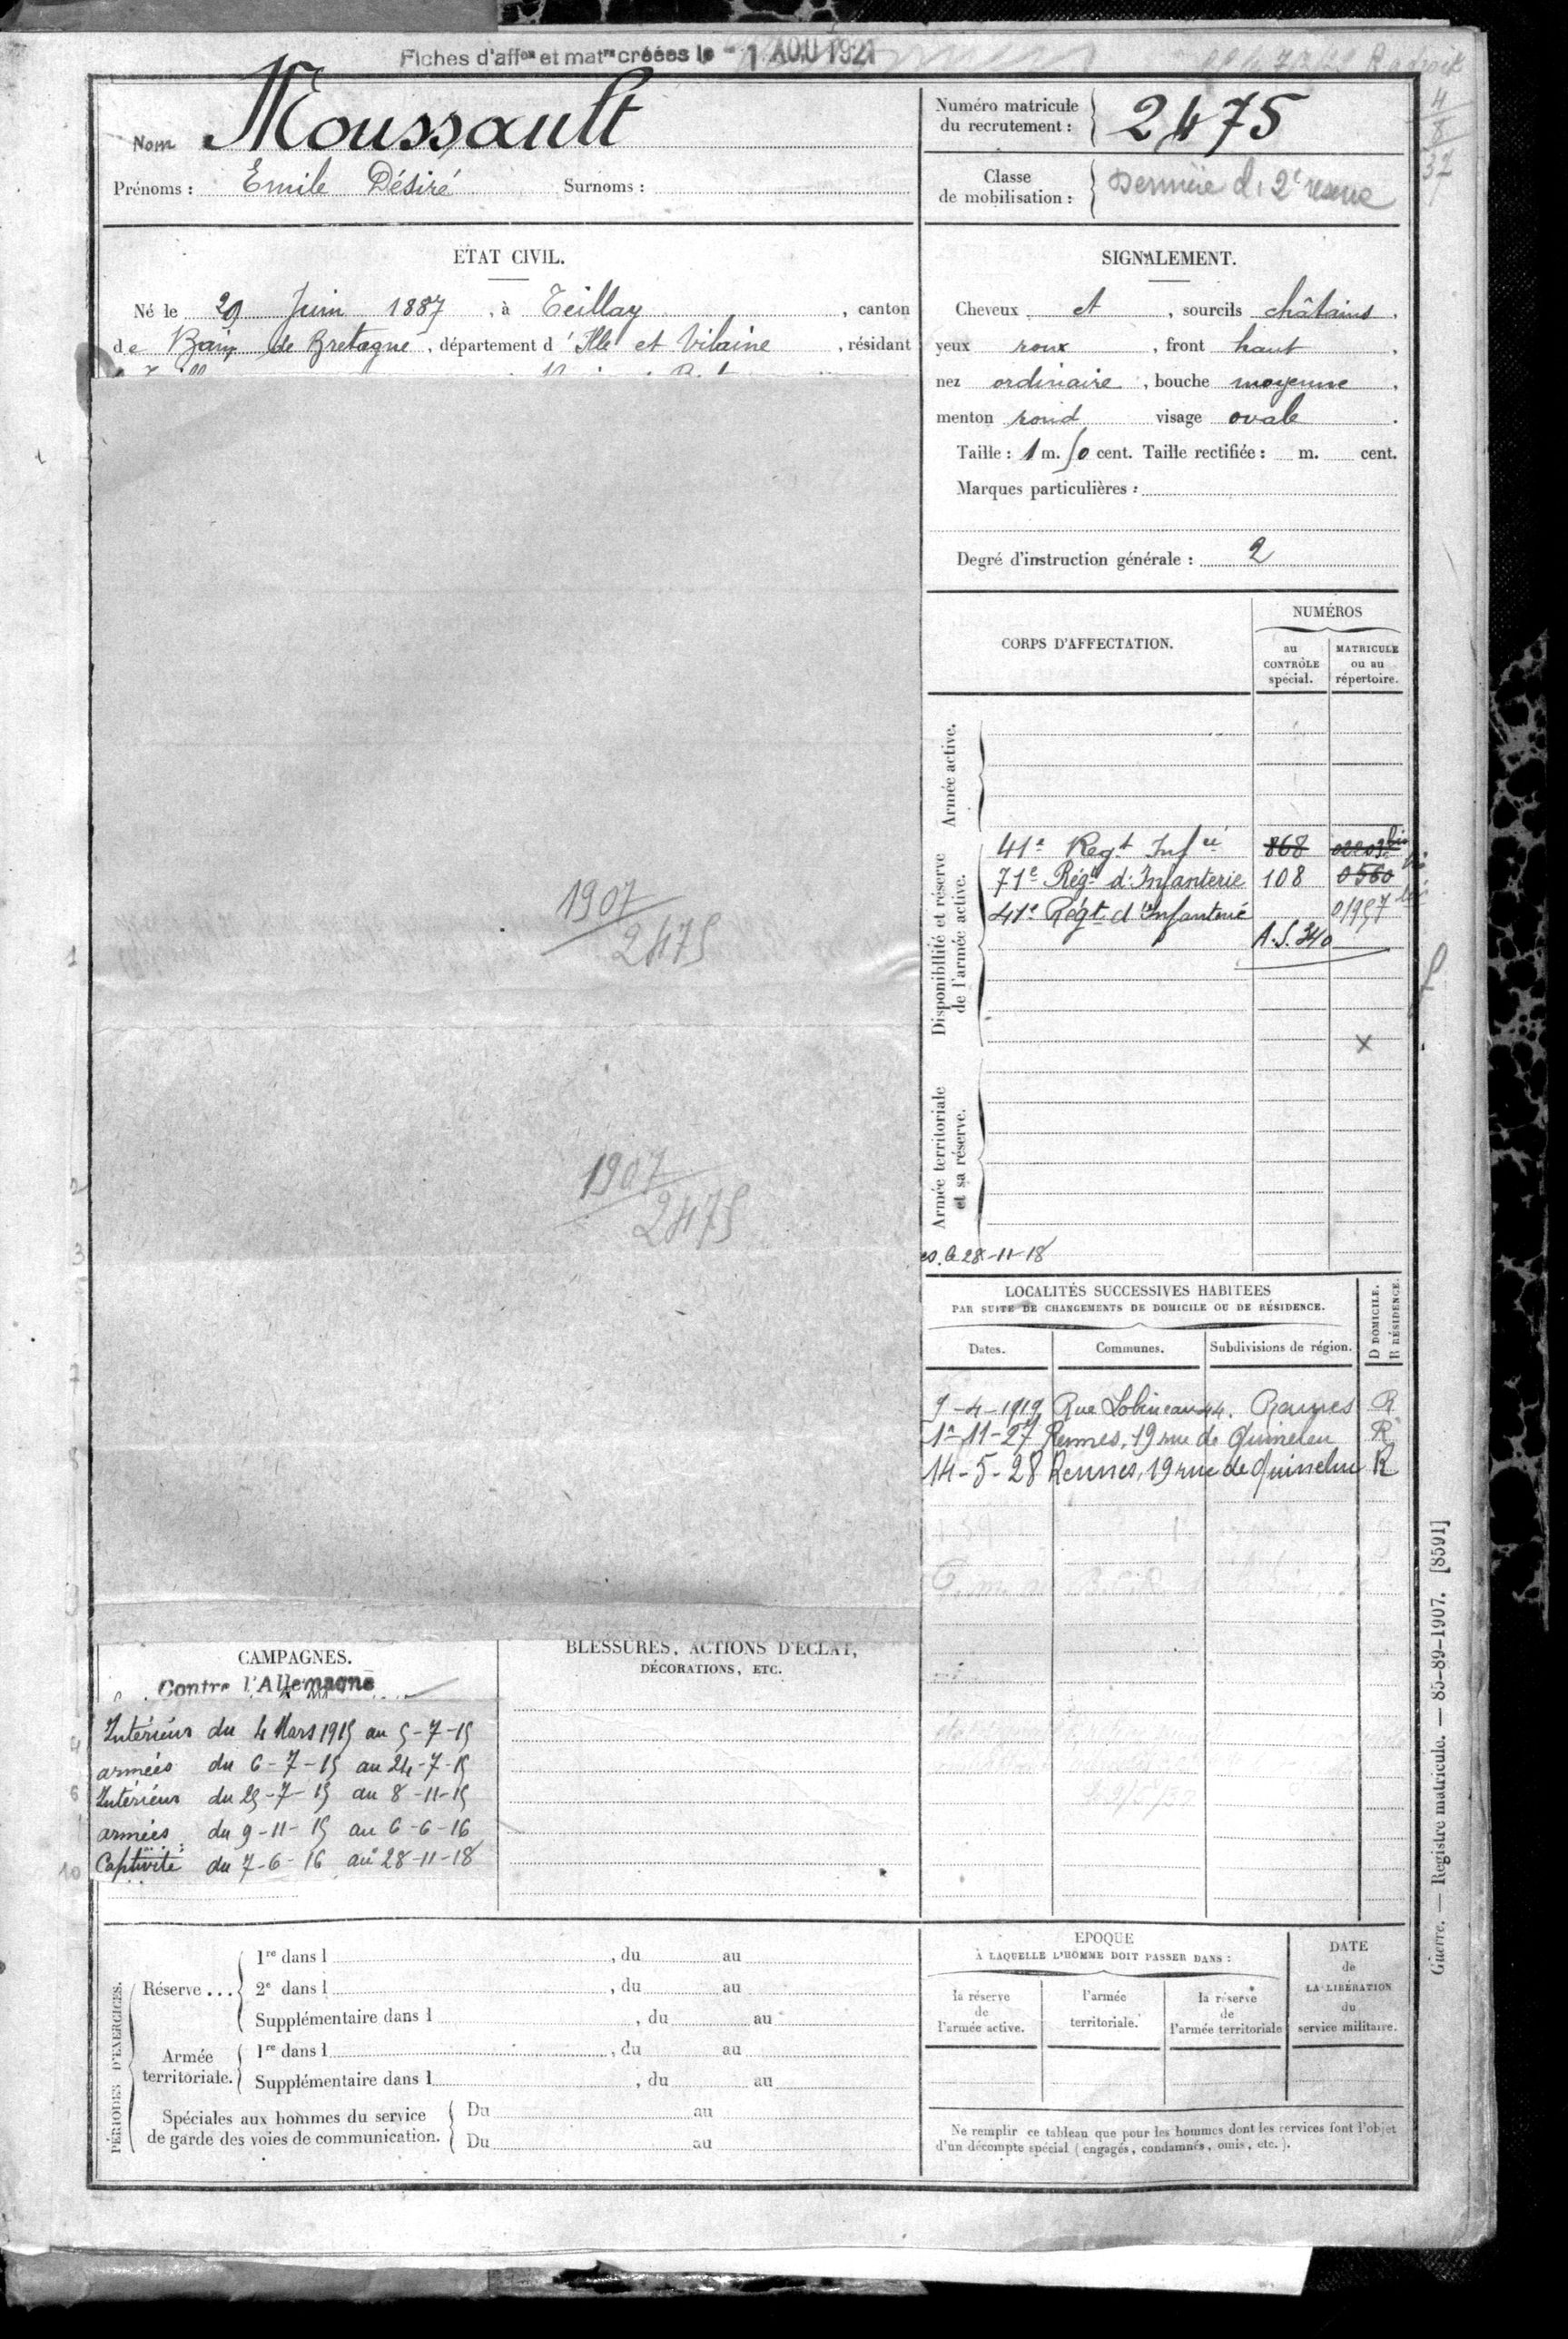 Fiches d'affon et matre créées le - 1 AOU 1921
Nom Moussault
Prénoms : Emile Désiré Surnoms :
Numéro matricule
du recrutement : 2475
Classe
de mobilisation : Dernière de 2e réserve
4
8
37
ÉTAT CIVIL.
Né le 29 Juin 1887, à Teillay, canton
de Bain de Bretagne, département d'Ille et Vilaine, résidant
1907
2475
1907
2475
SIGNALEMENT.
Cheveux et, sourcils châtains,
yeux roux, front haut,
nez ordinaire, bouche moyenne,
menton rond visage ovale.
Taille : 1 m. 50 cent. Taille rectifiée : m. cent.
Marques particulières :
Degré d'instruction générale : 2
CORPS D'AFFECTATION.
NUMÉROS
au
CONTRÔLE
spécial.
MATRICULE
ou au
répertoire.
Armée active.
Disponibilité et réserve
de l'armée active.
41e Regt Infie 868
71e Régt d'Infanterie 108 0560
41e Régt d'Infanterie 01957
A.S. 340
X
Armée territoriale
et sa réserve.
es. le 28-11-18
LOCALITÉS SUCCESSIVES HABITÉES
PAR SUITE DE CHANGEMENTS DE DOMICILE OU DE RÉSIDENCE.
Dates. Communes. Subdivisions de région.
D DOMICILE.
R RÉSIDENCE.
9-4-1919 Rue Lobineau 44. Rennes R
1er-11-27 Rennes, 19 rue de Quineleu R
14-5-28 Rennes, 19 rue de Quineleu R
CAMPAGNES.
Contre l'Allemagne
Intérieur du 4 Mars 1915 au 5-7-15
armées du 6-7-15 au 24-7-15
Intérieur du 25-7-15 au 8-11-15
armées du 9-11-15 au 6-6-16
Captivité du 7-6-16 au 28-11-18
BLESSURES, ACTIONS D'ÉCLAT,
DÉCORATIONS, ETC.
PÉRIODES D'EXERCICES.
Réserve...
1re dans l , du au
2e dans l , du au
Supplémentaire dans l , du au
Armée
territoriale.
1re dans l , du au
Supplémentaire dans l , du au
Spéciales aux hommes du service
de garde des voies de communication.
Du au
Du au
ÉPOQUE
À LAQUELLE L'HOMME DOIT PASSER DANS :
la réserve
de
l'armée active.
l'armée
territoriale.
la réserve
de
l'armée territoriale
DATE
de
LA LIBÉRATION
du
service militaire.
Ne remplir ce tableau que pour les hommes dont les services font l'objet
d'un décompte spécial (engagés, condamnés, omis, etc.).
Guerre. — Registre matricule. — 85-89-1907. [8591]